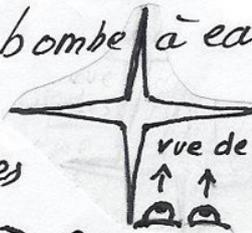 bombe à ea
vue de
es